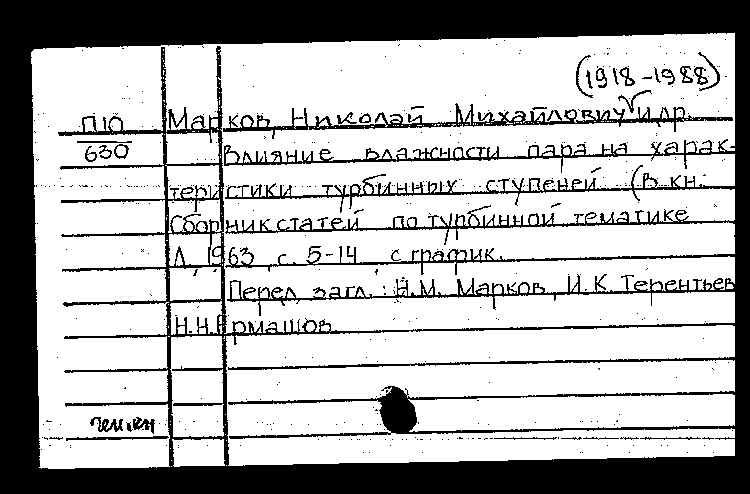 (1918-1988)
П10 Марков, Николай Михайлович и др.
630 Влияние влажности пара на харак-
теристики турбинных ступеней (В кн.:
Сборник статей по турбинной тематике
Л, 1963, с. 5-14, с график.
Перед загл.: Н.М. Марков, И.К. Терентьев
Н.Н.Ермашов.